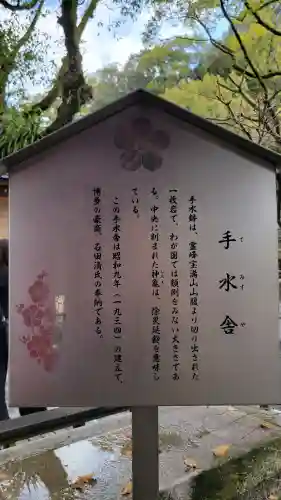 手水舎
てみずや
手水鉢は、霊峰宝満山山腹より切り出された
一枚岩で、わが国では類例をみない大きさであ
る。中央に刻まれた神亀は、除災延命を意味し
ている。
この手水舎は昭和九年（一九三四）の建立で、
博多の豪商、石田清氏の奉納である。